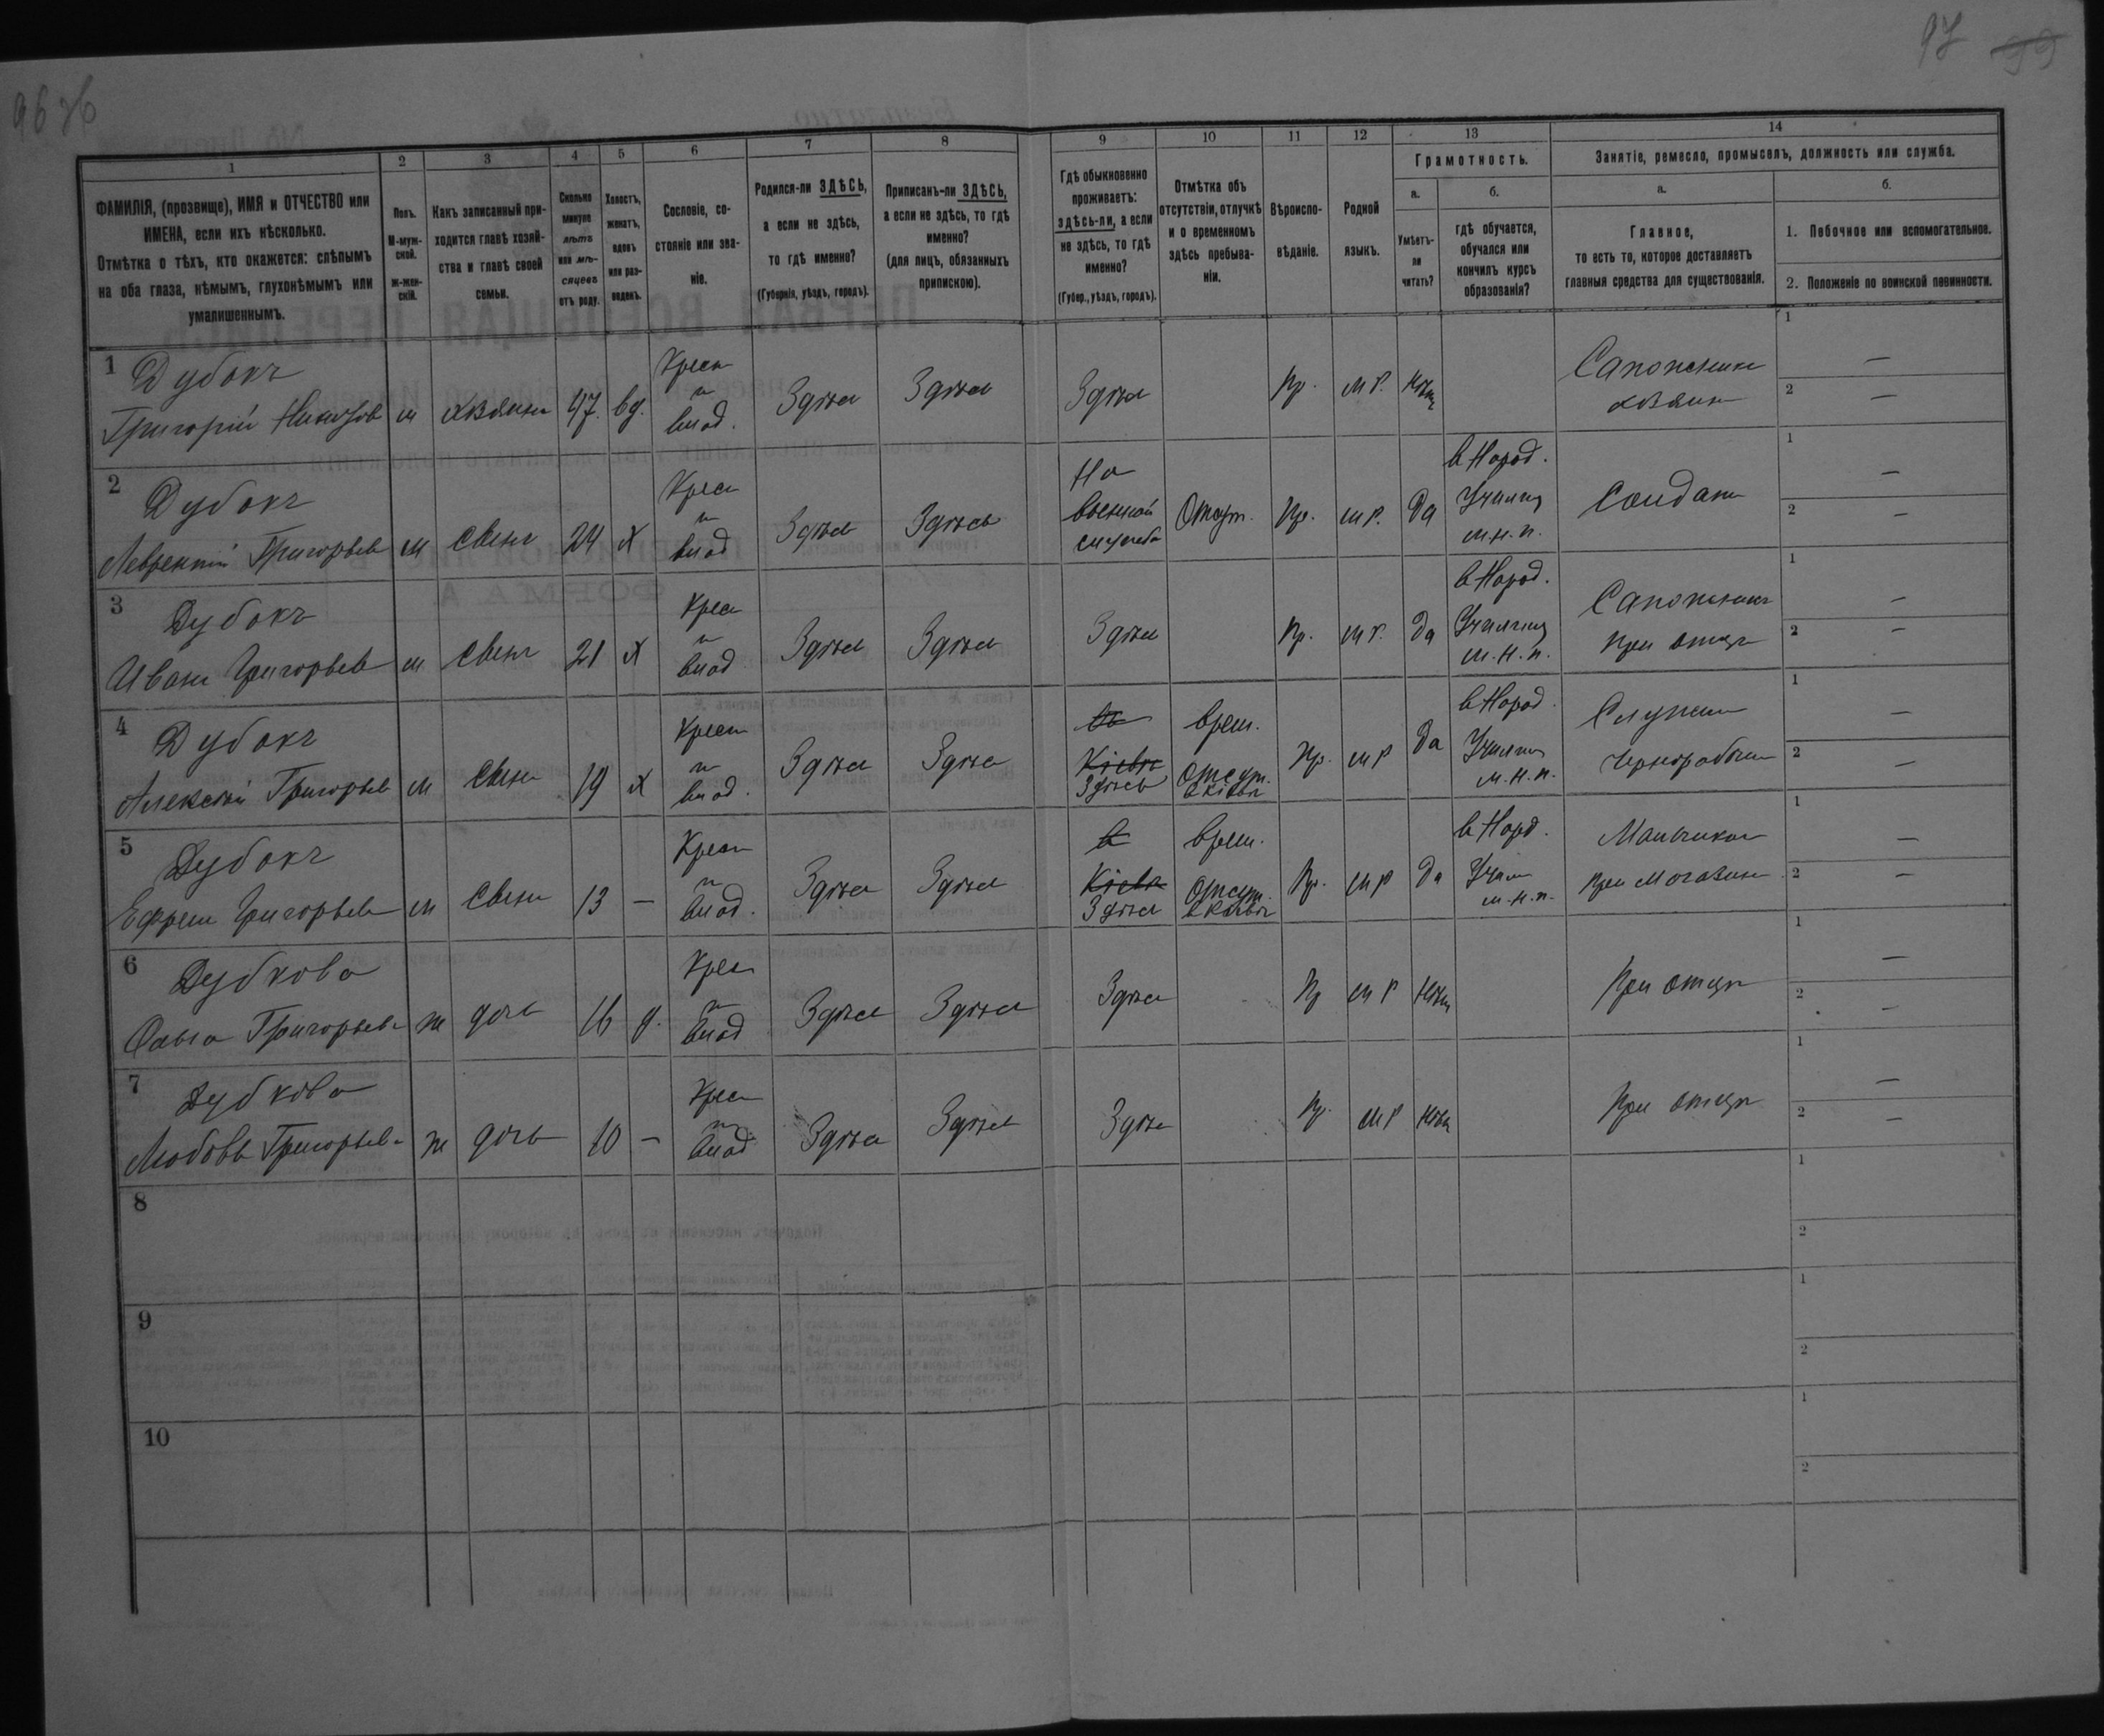 97 99
96 об
1 2 3 4 5 6 7 8 9 10 11 12 13 14
ФАМИЛІЯ, (прозвище), ИМЯ и ОТЧЕСТВО или ИМЕНА, если ихъ нѣсколько.
Отмѣтка о тѣхъ, кто окажется: слѣпымъ на оба глаза, нѣмымъ, глухонѣмымъ или умалишеннымъ.
Полъ. М-мужской. Ж-женскій.
Какъ записанный приходится главѣ хозяйства и главѣ своей семьи.
Сколько минуло лѣтъ или мѣсяцевъ отъ роду.
Холостъ, женатъ, вдовъ или разведенъ.
Сословіе, состояніе или званіе.
Родился-ли ЗДѢСЬ, а если не здѣсь, то гдѣ именно?
(Губернія, уѣздъ, городъ).
Приписанъ-ли ЗДѢСЬ, а если не здѣсь, то гдѣ именно?
(для лицъ, обязанныхъ припискою).
Гдѣ обыкновенно проживаетъ: здѣсь-ли, а если не здѣсь, то гдѣ именно?
(Губер., уѣздъ, городъ).
Отмѣтка объ отсутствіи, отлучкѣ и о временномъ здѣсь пребываніи.
Вѣроисповѣданіе.
Родной языкъ.
Грамотность.
а. Умѣетъ-ли читать?
б. гдѣ обучается, обучался или кончилъ курсъ образованія?
Занятіе, ремесло, промыселъ, должность или служба.
а. Главное,
то есть то, которое доставляетъ главныя средства для существованія.
б.
1. Побочное или вспомогательное.
2. Положеніе по воинской повинности.
1 Дубокъ
Григорій м хозяинъ 47. вд. Крест. и влад. Здѣсь Здѣсь Здѣсь Пр. м р. нѣтъ Сапожникъ хозяинъ 1 — 2 —
2 Дубокъ
Лаврентій Григорьев м сынъ 24 х Крест. и влад Здѣсь Здѣсь На военной службѣ Отсут. Пр. м р. да в Народ. Училищ м.н.п. Солдатъ 1 — 2 —
3 Дубокъ
Иванъ Григорьев м сынъ 21 х Крест. и влад Здѣсь Здѣсь Здѣсь Пр. м р. да в Народ. Училищ м.н.п. Сапожникъ при отцѣ 1 — 2 —
4 Дубокъ
Алексѣй Григорьев м сынъ 19 х Крест и влад. Здѣсь Здѣсь въ Кіевѣ Здѣсь врем. отсут. в Кіевѣ Пр. м р да в Народ. Училищ м.н.п. чернорабочим 1 — 2 —
5 Дубокъ
Ефрем Григорьев м сынъ 13 — Крест и влад. Здѣсь Здѣсь в Кіевѣ Здѣсь врем. отсут. в Кіевѣ Пр. м р да в Народ. Учил м.н.п. Мальчиком при магазинѣ 1 — 2 —
6 Дубкова
Ольга Григорьева ж дочь 16 д. Крест и влад Здѣсь Здѣсь Здѣсь Пр м р нѣтъ при отцѣ 1 — 2 —
7 Дубкова
Любовь Григорьева ж дочь 10 — Крест и влад Здѣсь Здѣсь Здѣсь Пр. м р нѣтъ при отцѣ 1 — 2 —
8 1 2
9 1 2
10 1 2